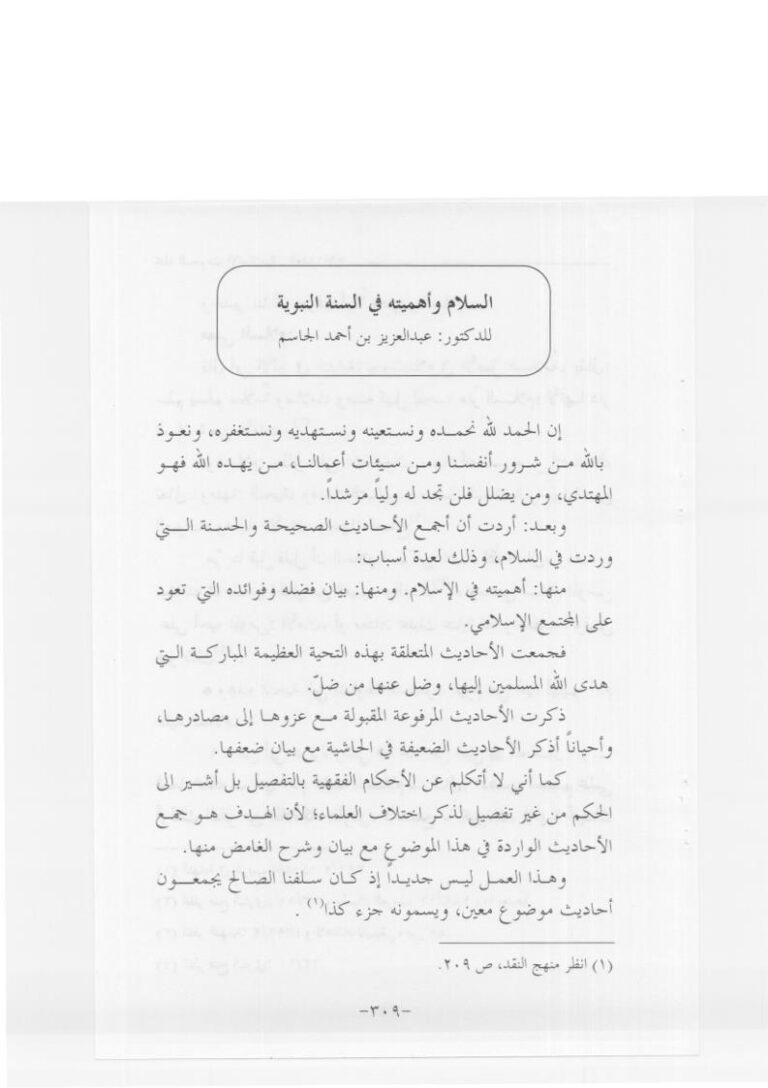 السلام وأهميته في السنة النبوية
للدكتور: عبدالعزيز بن أحمد الجاسم
إن الحمد لله نحمده ونستعينه ونستهديه ونستغفره، ونعوذ
بالله من شرور أنفسنا ومن سيئات أعمالنا، من يهده الله فهو
المهتدي، ومن يضلل فلن تجد له ولياً مرشداً.
وبعد: أردت أن أجمع الأحاديث الصحيحة والحسنة التي
وردت في السلام، وذلك لعدة أسباب:
منها: أهميته في الإسلام. ومنها: بيان فضله وفوائده التي تعود
على المجتمع الإسلامي.
فجمعت الأحاديث المتعلقة بهذه التحية العظيمة المباركة التي
هدى الله المسلمين إليها، وضل عنها من ضلّ.
ذكرت الأحاديث المرفوعة المقبولة مع عزوها إلى مصادرها،
وأحياناً أذكر الأحاديث الضعيفة في الحاشية مع بيان ضعفها.
كما أني لا أتكلم عن الأحكام الفقهية بالتفصيل بل أشير الى
الحكم من غير تفصيل لذكر اختلاف العلماء؛ لأن الهدف هو جمع
الأحاديث الواردة في هذا الموضوع مع بيان وشرح الغامض منها.
وهذا العمل ليس جديداً إذ كان سلفنا الصالح يجمعون
أحاديث موضوع معين، ويسمونه جزء كذا(١).
(١) انظر منهج النقد، ص ٢٠٩.
-٣٠٩-